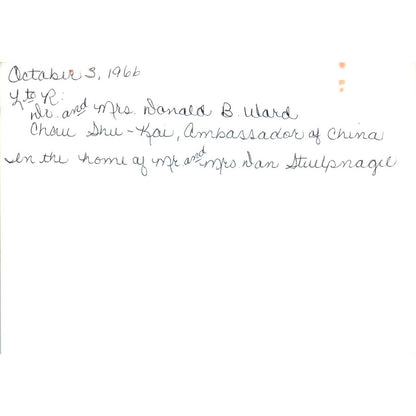 October 3, 1966
L to R:
Dr. and Mrs. Donald B. Ward
Chow Shu-Kai, Ambassador of China
in the home of Mr and Mrs Dan Stulpnagel